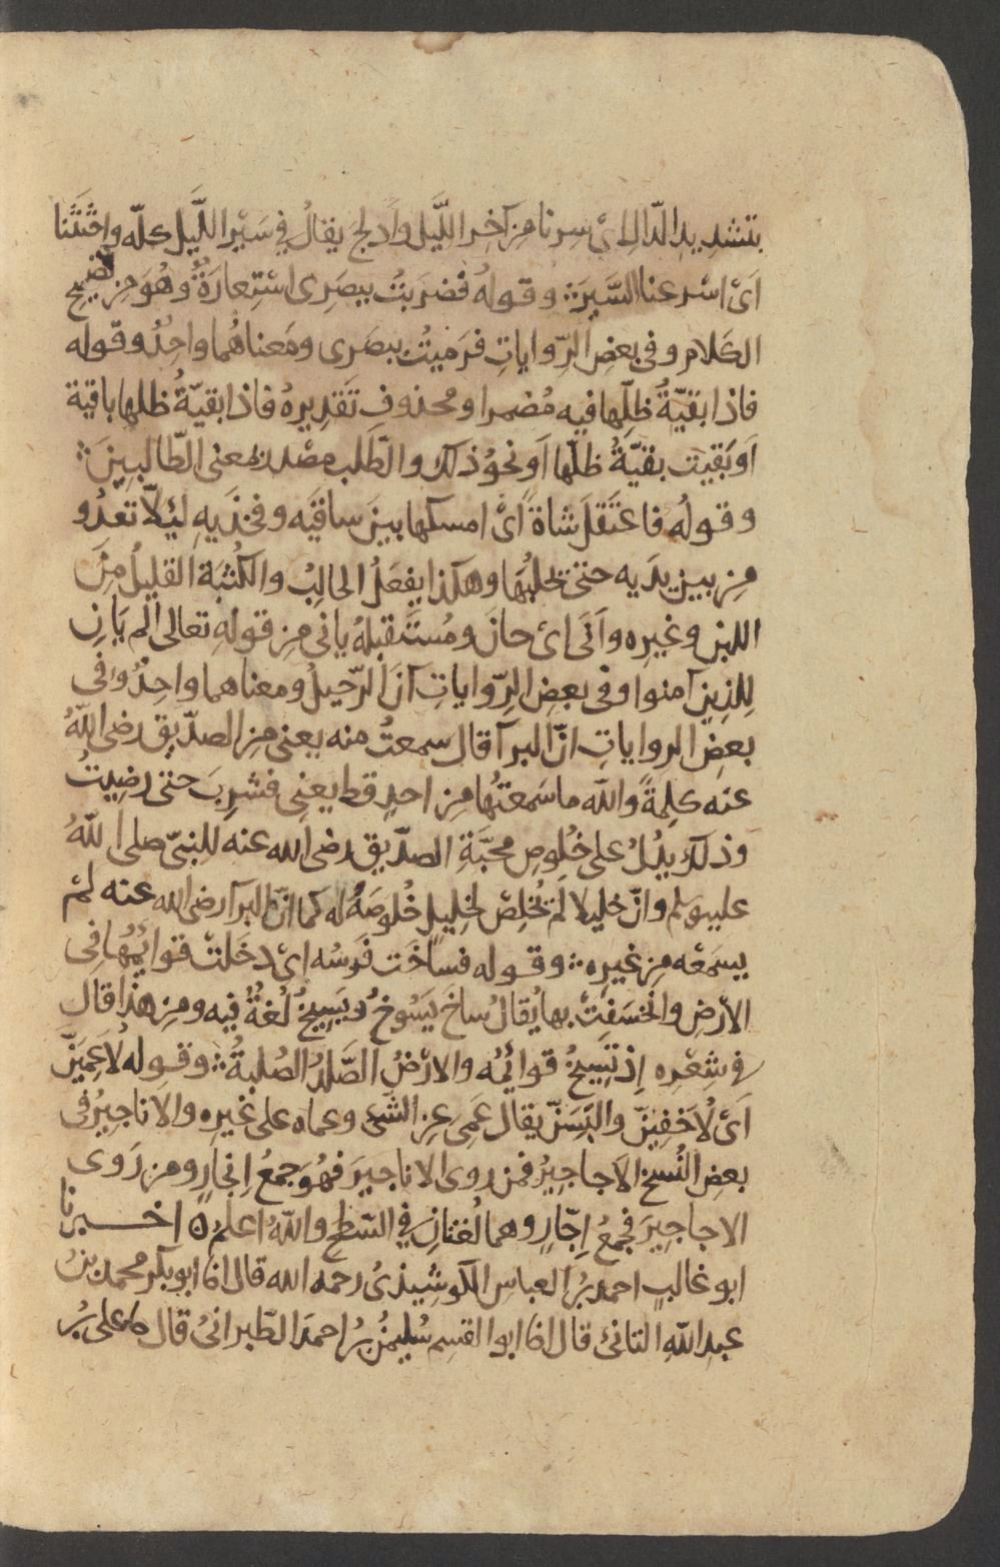 بتشديد الدّال اىْ سرنا مِن آخِر اللَّيل وأَدلج يقالُ فِي سَيْر اللَّيل كلّه واحْثَثْنا
اَىْ اسْرعنا السَّيرَ ؞ وقولهُ فضربتُ ببصَرِى اسْتِعارَةٌ وهُوَ مِن فصيح
الكلام وفى بعضِ الرِّواياتِ فرَميتُ ببصَرى ومَعناهُما واحِدٌ وقوله
فاذا بقيّةُ ظلِّها فيه مُضمرا ومحذوف تَقديرهُ فاذا بقيّةُ ظلها باقية
اَو بَقِيَت بقيَّةُ ظلّها اَو نحوُ ذلك والطّلب مصْدر بمعنى الطّالبينَ ؞
وقولُه فاعتَقلَ شاةً اىْ امسكها بينَ ساقيَه وفخذَيهِ لئِلّا تعدُو
مِن بين يدَيه حتى يحلبُهَا وهكذا يفعَلُ الحالِبُ والكُثبَة القليلُ مِنَ
اللبن وغيرِه وآنَى اىْ حانَ ومُستَقبلهُ يانى مِن قولهِ تعالى اَلم يَانِ
لِلذِين آمنوا وفى بعضِ الرِّواياتِ آنَ الرَّحيلُ ومعناهما واحِدٌ وفى
بعضِ الرواياتِ انّ البرآ قال سمعتُ منه يعنى مِن الصدّيق رضى اللّهُ
عنه كلِمةً واللّه ما سَمعتُها مِن احدٍ قط يعنِى فشرِبَ حتى رضِيتُ
وذلك يدُلُ على خُلوصِ محبَّةِ الصدّيق رضى الله عنه للنبىّ صلى اللّهُ
عليه وسلم وانّ خليلا لم يُخلِصْ لخليلٍ خُلوصَهُ له كما انّ البرآ رضى الله عنه لمْ
يسمَعْه مِن غيرِه ؞ وقوله فساخَت فرَسُه اىْ دخَلتْ قوائِمُها فِى
الأرضِ وانخسَفتْ بها يُقالُ ساخَ يَسُوخُ ويَسِيخُ لُغةٌ فيه ومِن هذا قال
فى شِعْرِه اِذ تَسِيخُ قوائمُه والارْضُ الصَّلدُ الصُلبةُ ؞ وقوله لأُعمِيَنَّ
اَىْ لأُخفِيَنّ والبّسَنّ يقال عَمِى عنِ الشَّىْ وعماه على غيرِه والاناجِيرُ فى
بعضِ النُسخ الاَجاجِيرُ فمن روى الاناجيرَ فهُوَ جَمعُ اِنجارٍ ومن رَوى
الاجاجِيرَ فجمعُ اِجّارٍ وهما لُغتانِ فى السّطحِ واللّهُ اعلمُ ۞ اخبرنا
ابو غالبٍ احمد بنُ العباس الكوشِيذىُ رحمه الله قال انا ابو بكر محمد بنُ
عبد اللّهِ التانئ قال انا ابو القسِم سُليمنُ بنُ احمدَ الطّبرانىُ قال نا على بنُ